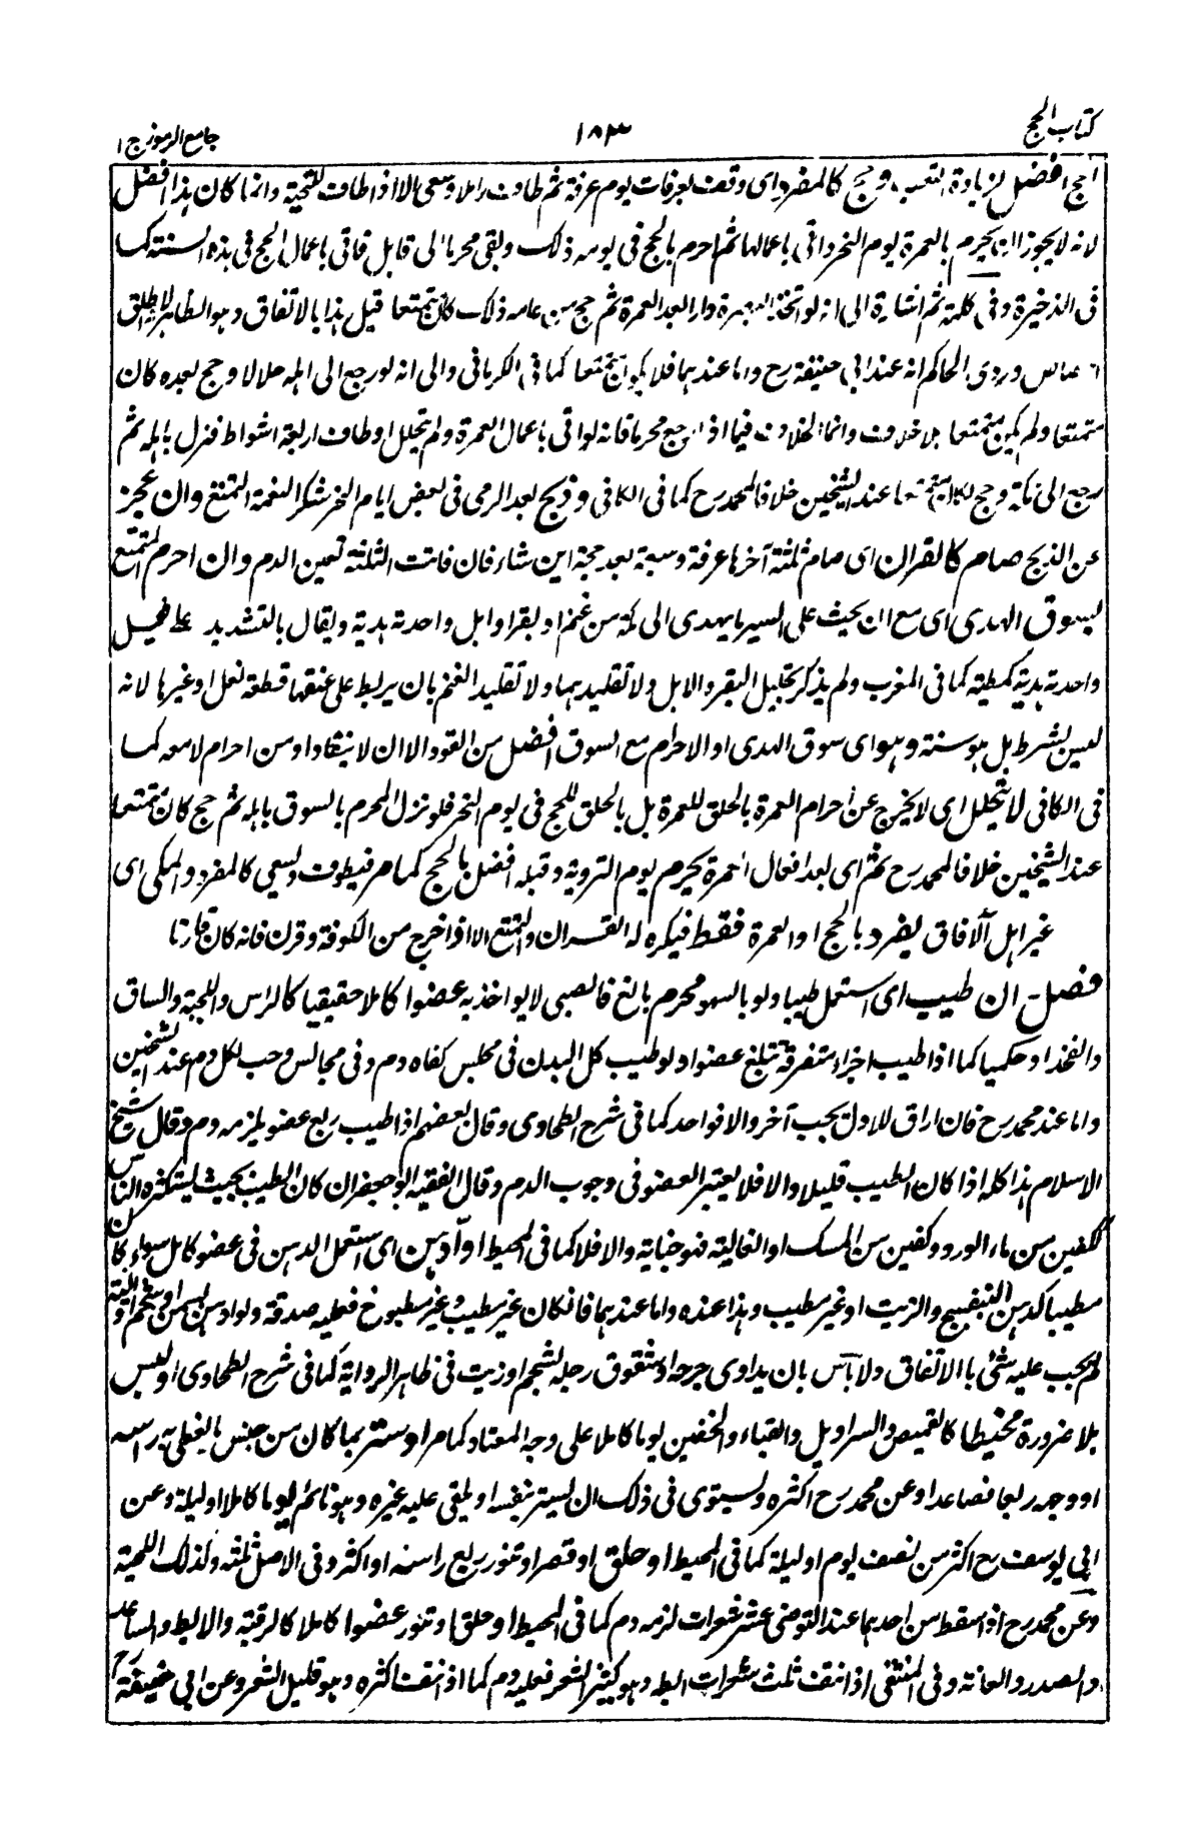 كتاب الحج
١٨٣
جامع الرموز ج ١
الحج افضل لزيادة التعب وحج كالمفرد اى وقف بعرفات يوم عرفة ثم طاف راملا وسعى الا اذا طاف للتحية وانما كان هذا افضل
لانه لا يجوز ان يحرم بالعمرة يوم النحر واتى باعمالها ثم احرم بالحج فى يومه ذلك وبقى محرما الى قابل فاتى باعمال الحج فى هذه السنة كما
فى الذخيرة وفى كلمة ثم اشارة الى انه لو دار بعد العمرة ثم حج من عامه ذلك كان متمتعا قيل هذا بالاتفاق وهو الظاهر لاطلاق
وروى الحاكم انه عند ابي حنيفة رح واما عندهما فلا يكون متمتعا كما فى الكرمانى والى انه لو رجع الى اهله حلالا وحج بعده كان
متمتعا ولم يكن متمتعا بلا خلاف وانما الخلاف فيما اذا رجع محرما فانه لو اتى باعمال العمرة ولم يتحلل او طاف اربعة اشواط فنزل باهله ثم
رجع الى مكة وحج لكان متمتعا عند الشيخين خلافا لمحمد رح كما فى الكافى وذبح بعد الرمى فى بعض ايام النحر شكرا لنعمة التمتع وان عجز
عن الذبح صام كالقران اى صام ثلثة آخرها عرفة وسبعة بعد حجة اين شاء فان فاتت الثلثة تعين الدم وان احرم المتمتع
بسوق الهدى اى مع ان يحث على السير ما يهدى الى مكة من غنم او بقر او ابل واحدته هدية ويقال بالتشديد على فعيل
واحدته هدية كمطية كما فى المغرب ولم يذكر تجليل البقر والابل ولا تقليدهما ولا تقليد الغنم بان يربط على عنقها قطعة نعل او غيرها لانه
ليس بشرط بل هو سنة وهو اى سوق الهدى او الاحرام مع السوق افضل من القود الا ان لا ينقاد او من احرام لا معه كما
فى الكافى لا يتحلل اى لا يخرج عن احرام العمرة بالحلق للعمرة بل بالحلق للحج فى يوم النحر فلو نزل المحرم بالسوق باهله ثم حج كان متمتعا
عند الشيخين خلافا لمحمد رح ثم اى بعد افعال العمرة يحرم يوم التروية وقبله افضل بالحج كما مر فيطوف ويسعى كالمفرد والمكى اى
غير اهل الآفاق يفرد بالحج او العمرة فقط فيكره له القران والتمتع الا اذا خرج من الكوفة وقرن فانه كان قارنا
فصل ان طيب اى استعمل طيبا ولو بالسهو محرم بالغ فالصبى لا يواخذ به عضوا كاملا حقيقيا كالراس واللحية والساق
والفخذ او حكميا كما اذا طيب اجزاء متفرقة تبلغ عضوا ولو طيب كل البدن فى مجلس كفاه دم وفى مجالس وجب لكل دم عند الشيخين
واما عند محمد رح فان اراق للاول يجب آخر والا فواحد كما فى شرح الطحاوى وقال بعضهم اذا طيب ربع عضو يلزمه دم وقال شيخ
الاسلام هذا كله اذا كان الطيب قليلا والا فلا يعتبر العضو فى وجوب الدم وقال الفقيه ابو جعفر ان كان الطيب بحيث يستكثره الناس
ككفين من ماء الورد وكفين من المسك او الغالية فهو جناية والا فلا كما فى المحيط او ادهن اى استعمل الدهن فى عضو كامل سواء كان
مطيبا كدهن البنفسج والزيت او غير مطيب وهذا عنده واما عندهما فان كان غير مطيب وغير مطبوخ فعليه صدقة ولو ادهن بسمن او شحم او الية
لم يجب عليه شئ بالاتفاق ولا بأس بان يداوى جرحه او شقوق رجله بشحم او زيت فى ظاهر الرواية كما فى شرح الطحاوى او لبس
بلا ضرورة مخيطا كالقميص والسراويل والقباء والخفين يوما كاملا على وجه المعتاد كما مر او ستر بما كان من جنس ما يغطى به راسه
او وجهه ربعا فصاعدا وعن محمد رح اكثره ويستوى فى ذلك ان يستر بنفسه او يلقى عليه غيره وهو نائم يوما كاملا او ليلة وعن
ابي يوسف رح اكثر من نصف يوم او ليلة كما فى المحيط او حلق او قصر او تنور ربع راسه او اكثر وفى الاصل ثلثه وكذلك اللحية
وعن محمد رح اذا سقط من احدهما عند التوضى عشر شعرات لزمه دم كما فى المحيط او حلق او تنور عضوا كاملا كالرقبة والابط والساعد
والصدر والعانة وفى المنتقى اذا نتف ثلث شعرات ابطه وهو كثير الشعر فعليه دم كما اذا نتف اكثره وهو قليل الشعر وعن ابي حنيفة رح